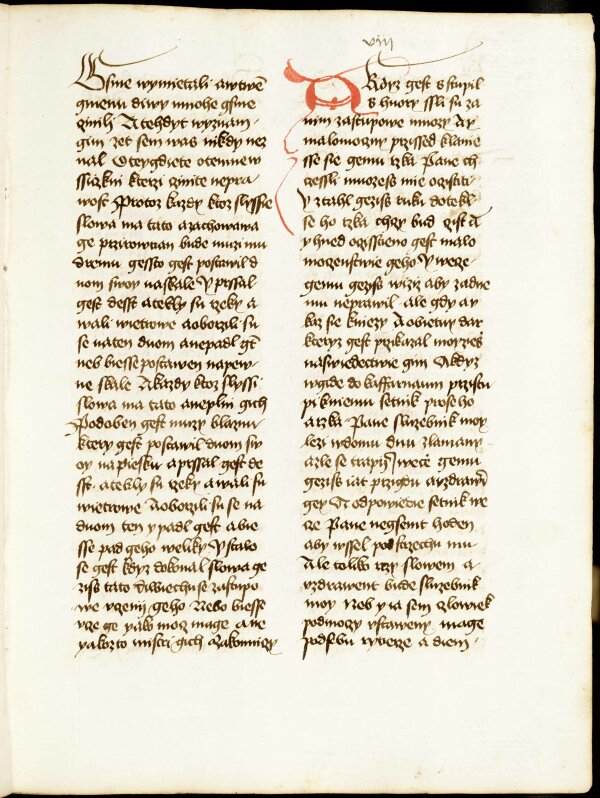 viij
Gsme wymietali awtwe
gmenu diwy mnohe gsme
cinili A tehdyt wyznam
gim zet sem was nikdy nez
nal Oteygdiete otemne w
ssickni kterzi cinite nepra
wost Protoz kazdy ktoz slyssie
slowa ma tato a zachowawa
ge przirownan bude muzi mu
dremu gessto gest postawil d
uom swoy na skale Y prssal
gest desst a tekly su rzeky a
wali wietrowe a oborzili su
se na ten duom a nepadl gt
neb biesse postawen na pew
ne skale A kazdy ktoz slyssi
slowa ma tato a neplni gich
Podoben gest muzy blaznu
ktery gest postawil duom sw
oy na piesku a prssal gest de
sst a tekly su rzeky a wali su
wietrowe A oborzili su se na
duom ten y padl gest a bie
sse pad geho weliky Y stalo
se gest kdyz dokonal slowa ge
ziss tato diwiechu se zastupo
we vczeni geho Nebo biesse
vcze ge yako moz mage a ne
yakozto mistrzi gich Zakonnizy
A Kdyz gest sstupil
s huory ssli su za
nim zastupowe mnozy A ay
malomoczny przissed klanie
sse sie gemu rzka Pane ch
czessli muozess mie oczistiti
Y ztahl geziss ruku dotekl
se ho rzka chczy bud czist A
y hned oczisstieno gest malo
moczenstwie geho Y wecze
gemu geziss wiziz aby zadne
mu neprawil ale gdy ay
kaz sie kniezy A obietuy dar
kteryz gest przikazal moyzess
na swiedectwie gim A kdyz
wgide do kaffarnaum przistu
pi k niemu setnik prose ho
a rzka Pane sluzebnik moy
lezi w domu dnu zlamany
a zle se trapi wece gemu
geziss iat przigdu a vzdrawi
gey A odpowiedie setnik we
ce Pane negsemt hoden
aby wssel pod strzechu mu
Ale toliko rczy slowem a
vzdrawent bude sluzebnik
moy Neb y ia sem czlowiek
pod moczy vstaweny mage
pod sebu rytierze a diem